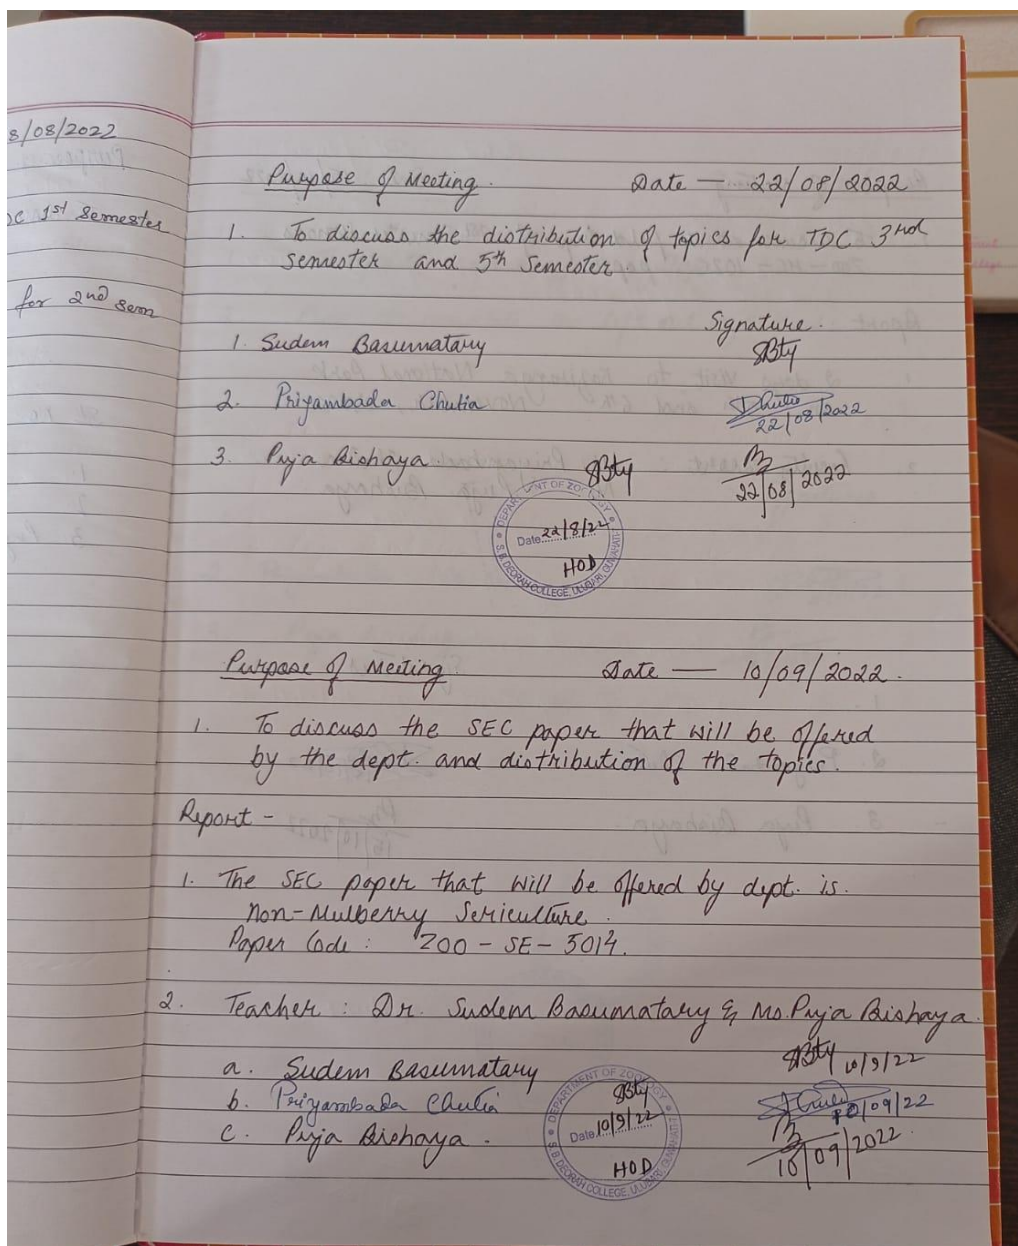 8/08/2022
DC 1st Semester
for 2nd Sem
Purpose of Meeting. Date — 22/08/2022
1. To discuss the distribution of topics for TDC 3rd
semester and 5th Semester.
Signature.
1. Sudem Basumatary SBty
2. Priyambada Chutia
22/08/2022
3. Puja Bishaya SBty
22/08/2022
DEPARTMENT OF ZOOLOGY
Date 22/8/22
HOD
S. B. DEORAH COLLEGE, ULUBARI, GUWAHATI
Purpose of Meeting Date — 10/09/2022.
1. To discuss the SEC paper that will be offered
by the dept. and distribution of the topics.
Report -
1. The SEC paper that will be offered by dept. is.
Non-Mulberry Sericulture.
Paper Code : ZOO - SE - 5014.
2. Teacher : Dr. Sudem Basumatary & Ms. Puja Bishaya.
a. Sudem Basumatary SBty 10/9/22
b. Priyambada Chutia 10/09/22
c. Puja Bishaya. 10/09/2022.
DEPARTMENT OF ZOOLOGY
SBty
Date 10/9/22
HOD
S. B. DEORAH COLLEGE, ULUBARI,